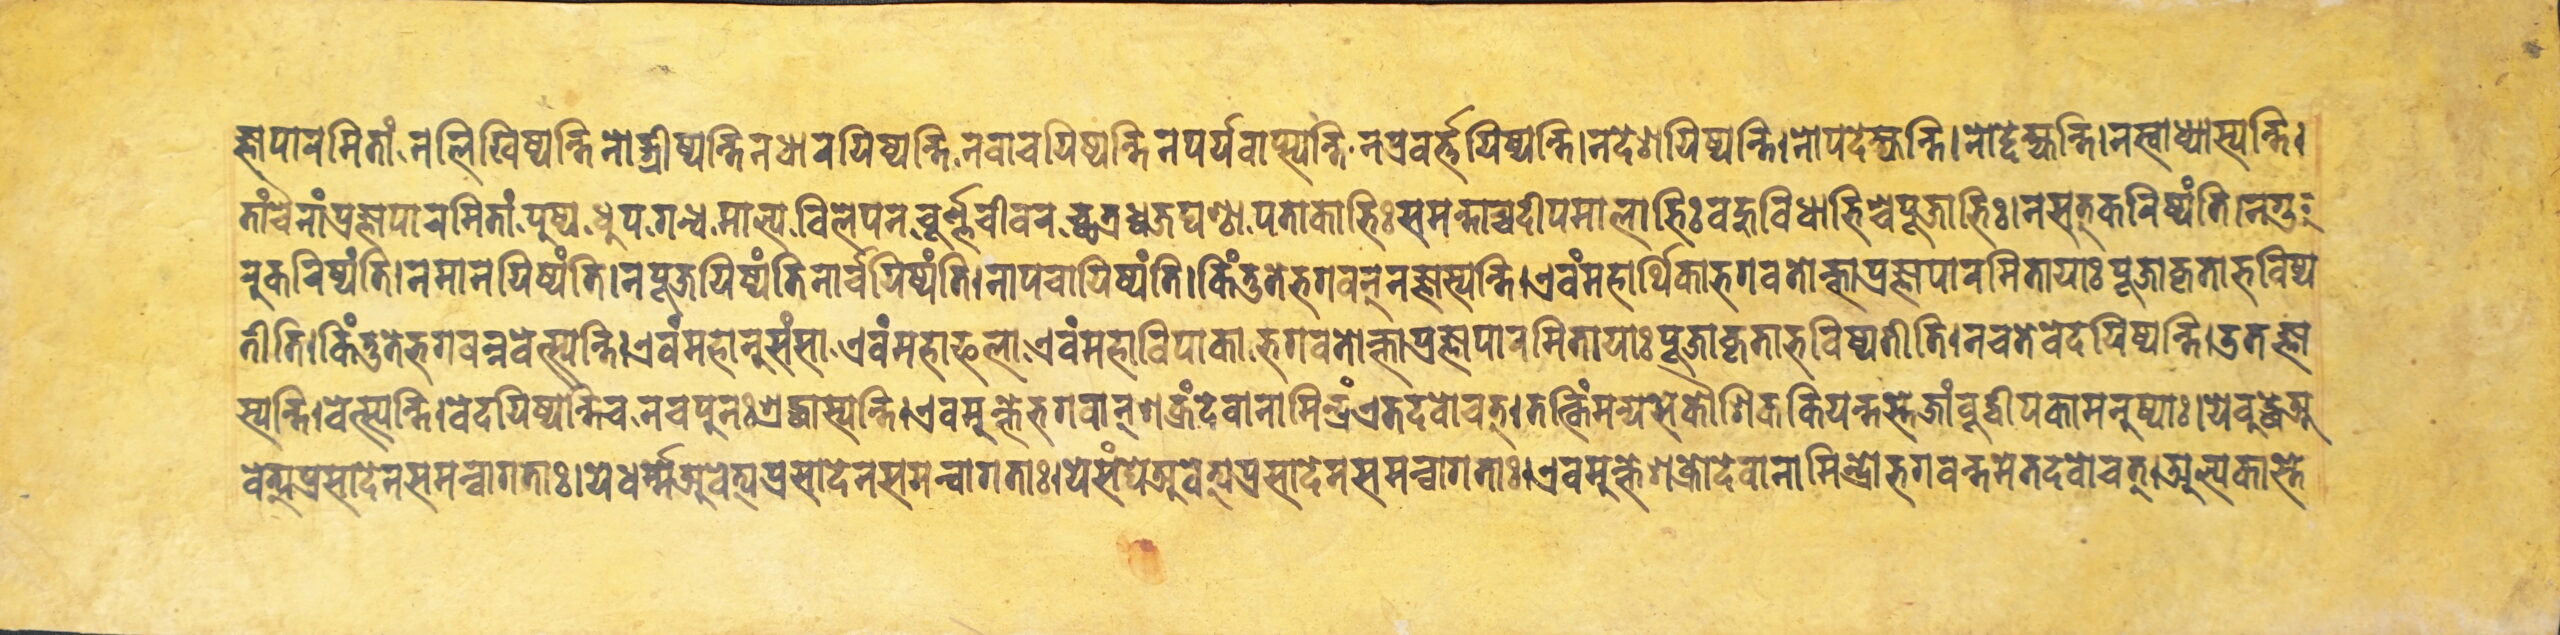 ज्ञापारमितां न लिखिष्यन्ति नोद्ग्रीष्यन्ति न धारयिष्यन्ति न वाचयिष्यन्ति न पर्यवाप्स्यन्ति न प्रवर्त्तयिष्यन्ति। न देशयिष्यन्ति। नोपदेक्ष्यन्ति। नोद्देक्ष्यन्ति। न स्वाध्यास्यन्ति।
तां चैनां प्रज्ञापारमितां पुष्प धुप गन्ध माल्य विलेपन चूर्ण्ण चीवर च्छत्र ध्वज घण्ठा पताकाभिः समन्ताच्च दीपमालाभिः वहुविधाभिश्च पूजाभिः। न सत्करिष्यंति। न गु
रुकरिष्यंति। न मानयिष्यंति। न पूजयिष्यंति नार्चयिष्यंति। नापचायिष्यंति। किंतु ते भगवन् न ज्ञास्यन्ति। एवं महार्थिका भगवतोक्ता प्रज्ञापारमितायाः पूजा कृता भविष्य
तीति। किंतु ते भगवन्न वेत्स्यन्ति। एवं महानुसंसा एवं महाफला एवं महाविपाका भगवतोक्ता प्रज्ञापारमितायाः पूजा कृता भविष्यतीति। न च ते वेदयिष्यन्ति। उत ज्ञा
स्यन्ति। वेत्स्यन्ति। वेदयिष्यन्ति च न च पुनः श्रद्धास्यन्ति। एवमुक्ते भगवान् शक्रं देवानामिन्द्रं एतदवोचत्। तत्किं मन्यसे कौशिक कियन्तस्ते जांवूद्वीपका मनुष्याः। ये वुद्धे अ
वेत्यप्रसादेन समन्वागताः। ये धर्म्मे अवेत्यप्रसादेन समन्वागताः। ये संघे अवेत्यप्रसादेन समन्वागताः। एवमुक्ते शक्रो देवानामिन्द्रो भगवन्तमेतदवोचत्। अल्पकास्ते